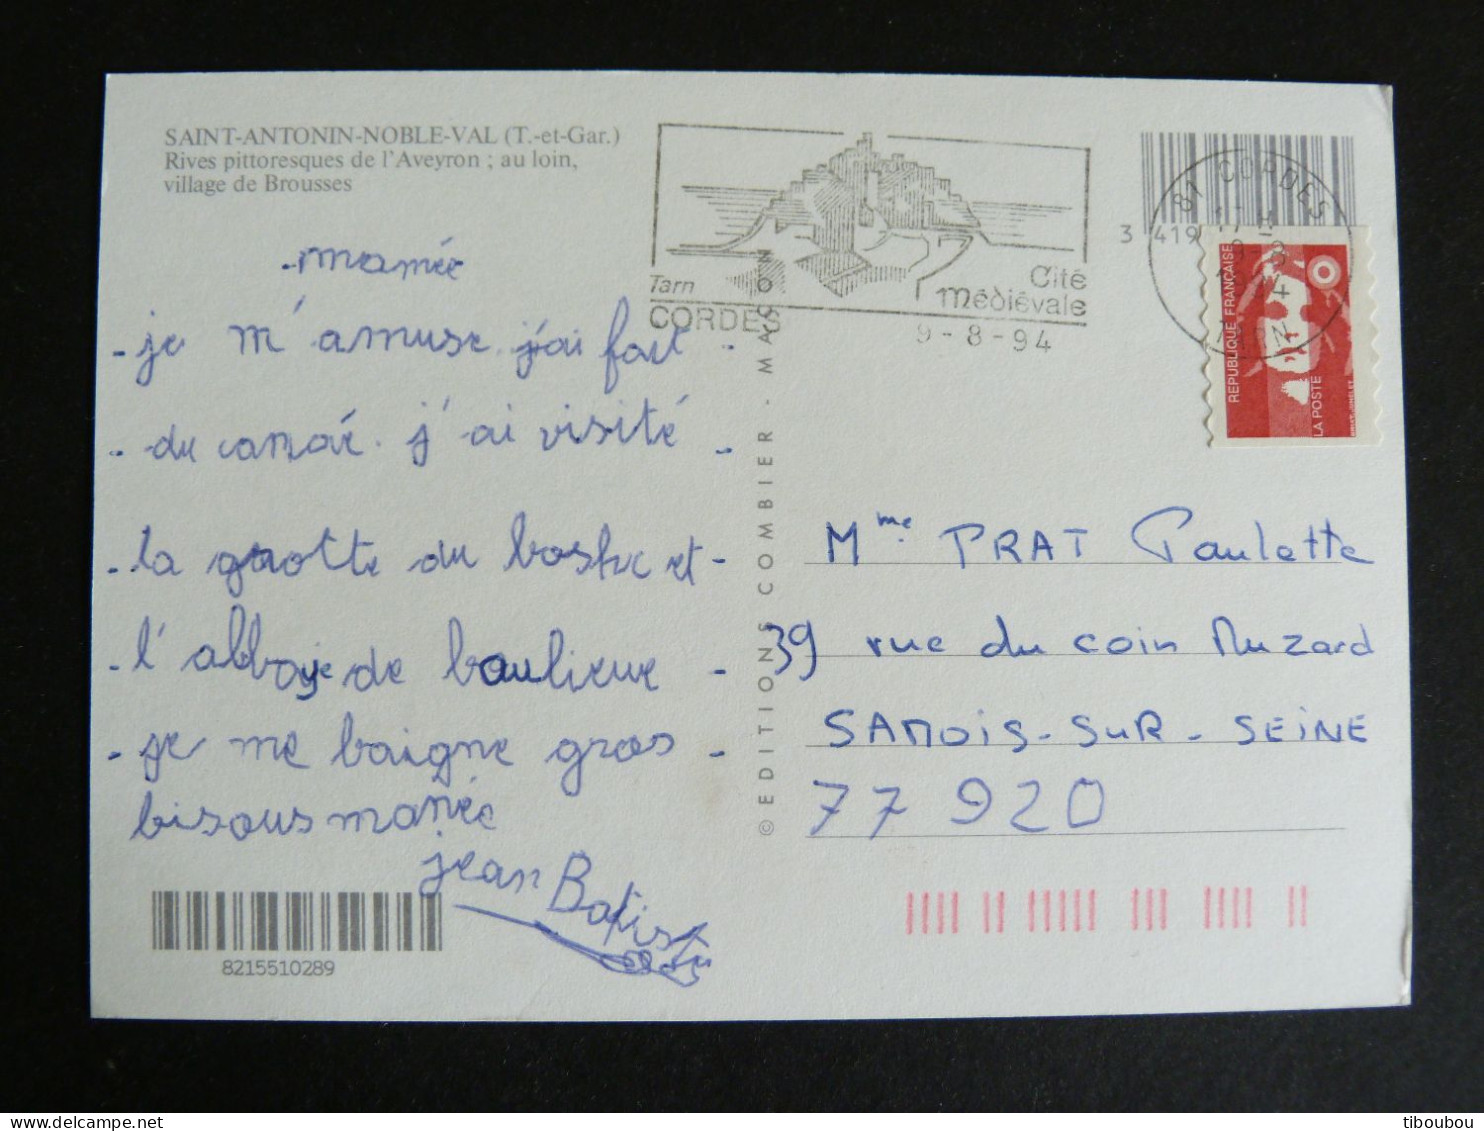 SAINT-ANTONIN-NOBLE-VAL (T.-et-Gar.)
Rives pittoresques de l'Aveyron ; au loin,
village de Brousses
mamée
- je m'amuse. j'ai fait -
- du canoé. j'ai visité -
- la grotte du boske et -
- l'abbaye de baulieue -
- je me baigne gros -
bisous mamée
jean Batiste
8215510289
© EDITIONS COMBIER - MACON
Tarn
CORDES
Cité
médiévale
9-8-94
3 419
81 CORDES
TARN
REPUBLIQUE FRANÇAISE
LA POSTE
Mme PRAT Paulette
39 rue du coin Muzard
SAMOIS-SUR-SEINE
77920
tiboubou